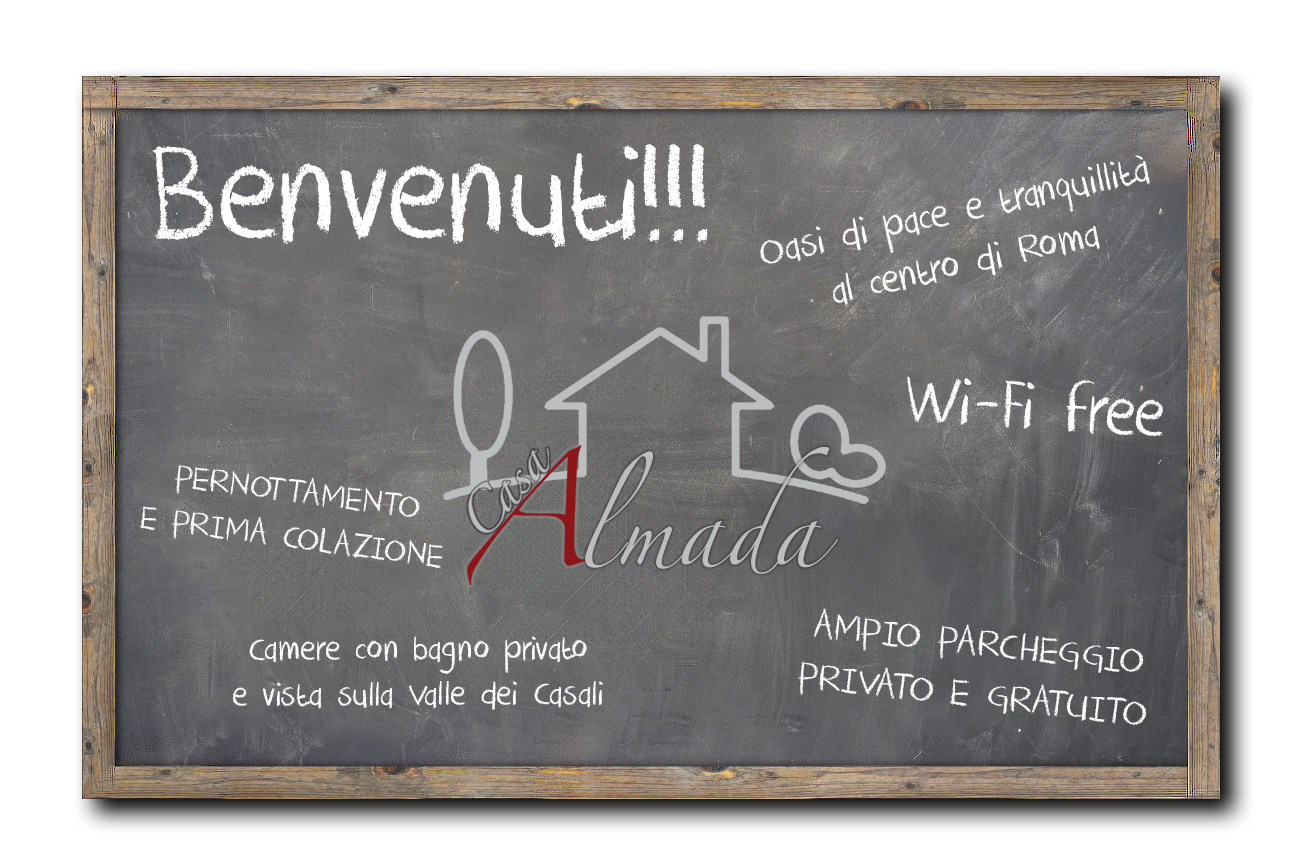 Benvenuti!!!
Oasi di pace e tranquillità
al centro di Roma
Wi-Fi free
Casa
Almada
PERNOTTAMENTO
E PRIMA COLAZIONE
Camere con bagno privato
e vista sulla Valle dei Casali
AMPIO PARCHEGGIO
PRIVATO E GRATUITO